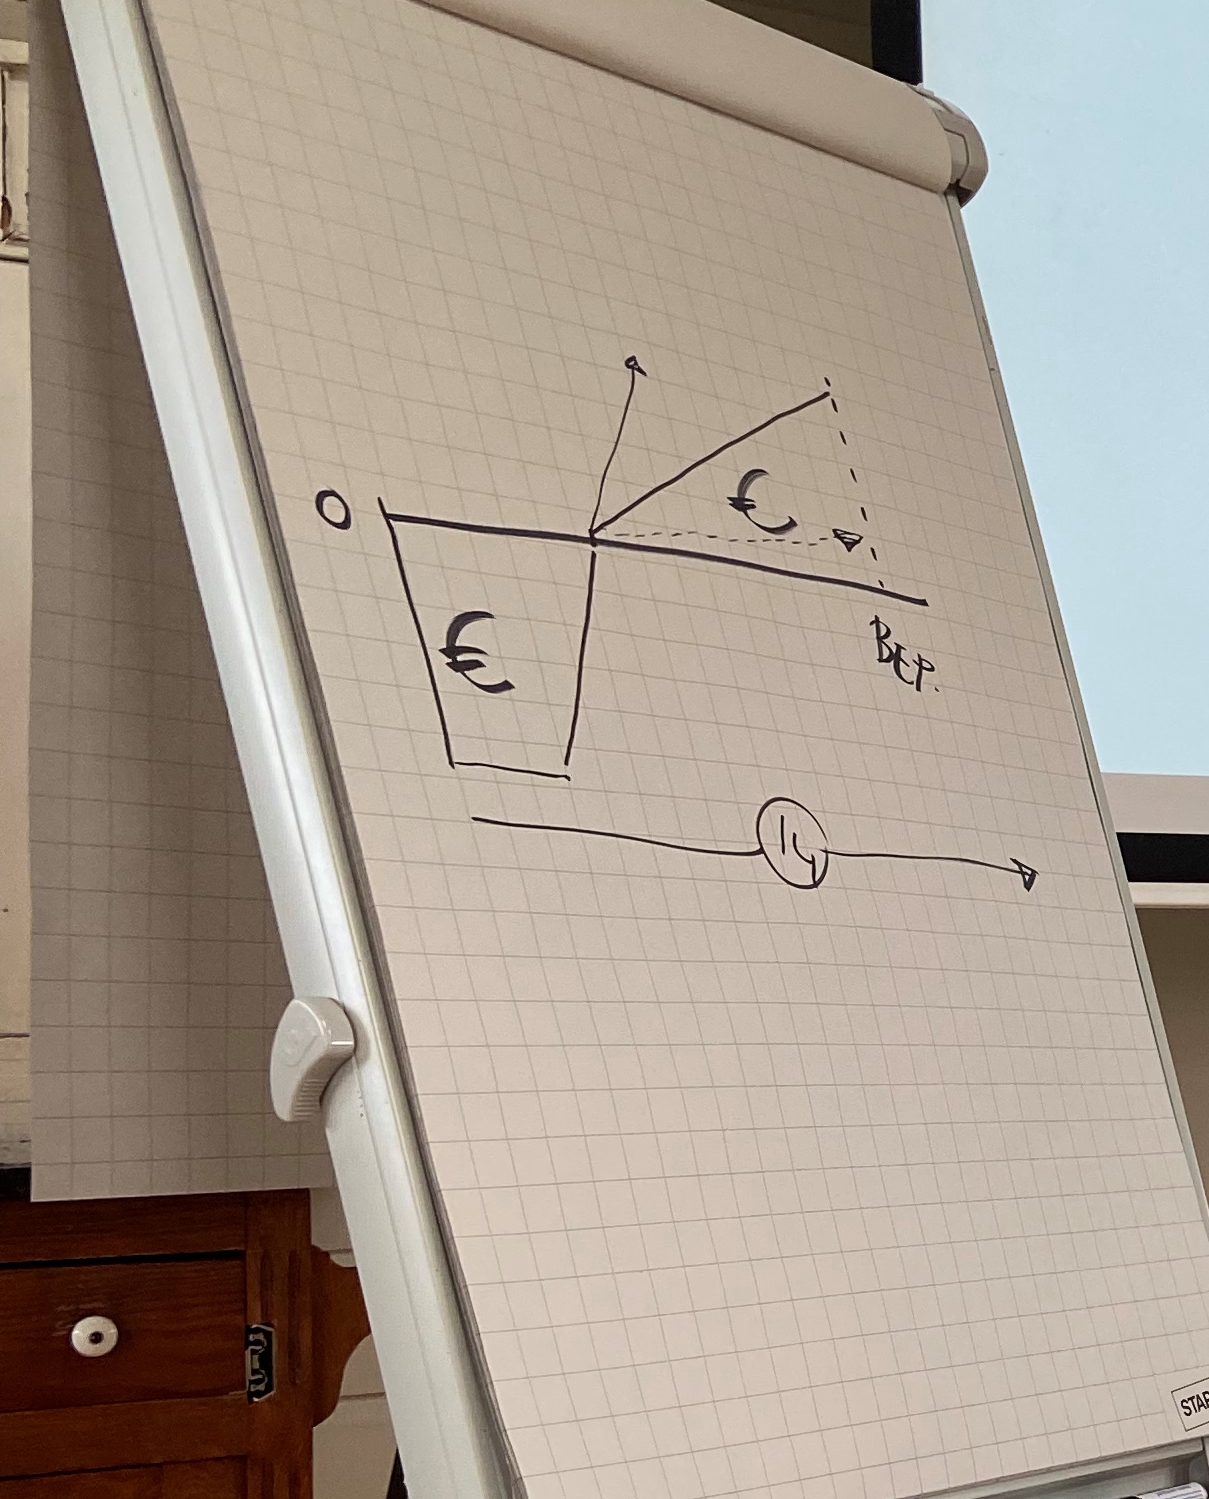 0
€
€
BEP.
STAR